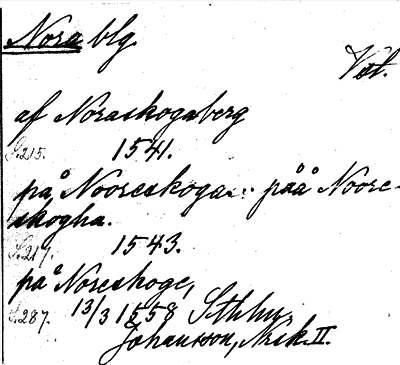 Nora blg
Vst.
af Noraskogaberg
S.215. 1541.
på Nooreskoga... påå Noore-
skogha.
S.217. 1543.
på Noreskoge,
S.287. 13/3 1558 Sthlm,
Johansson, Nrsk. II.